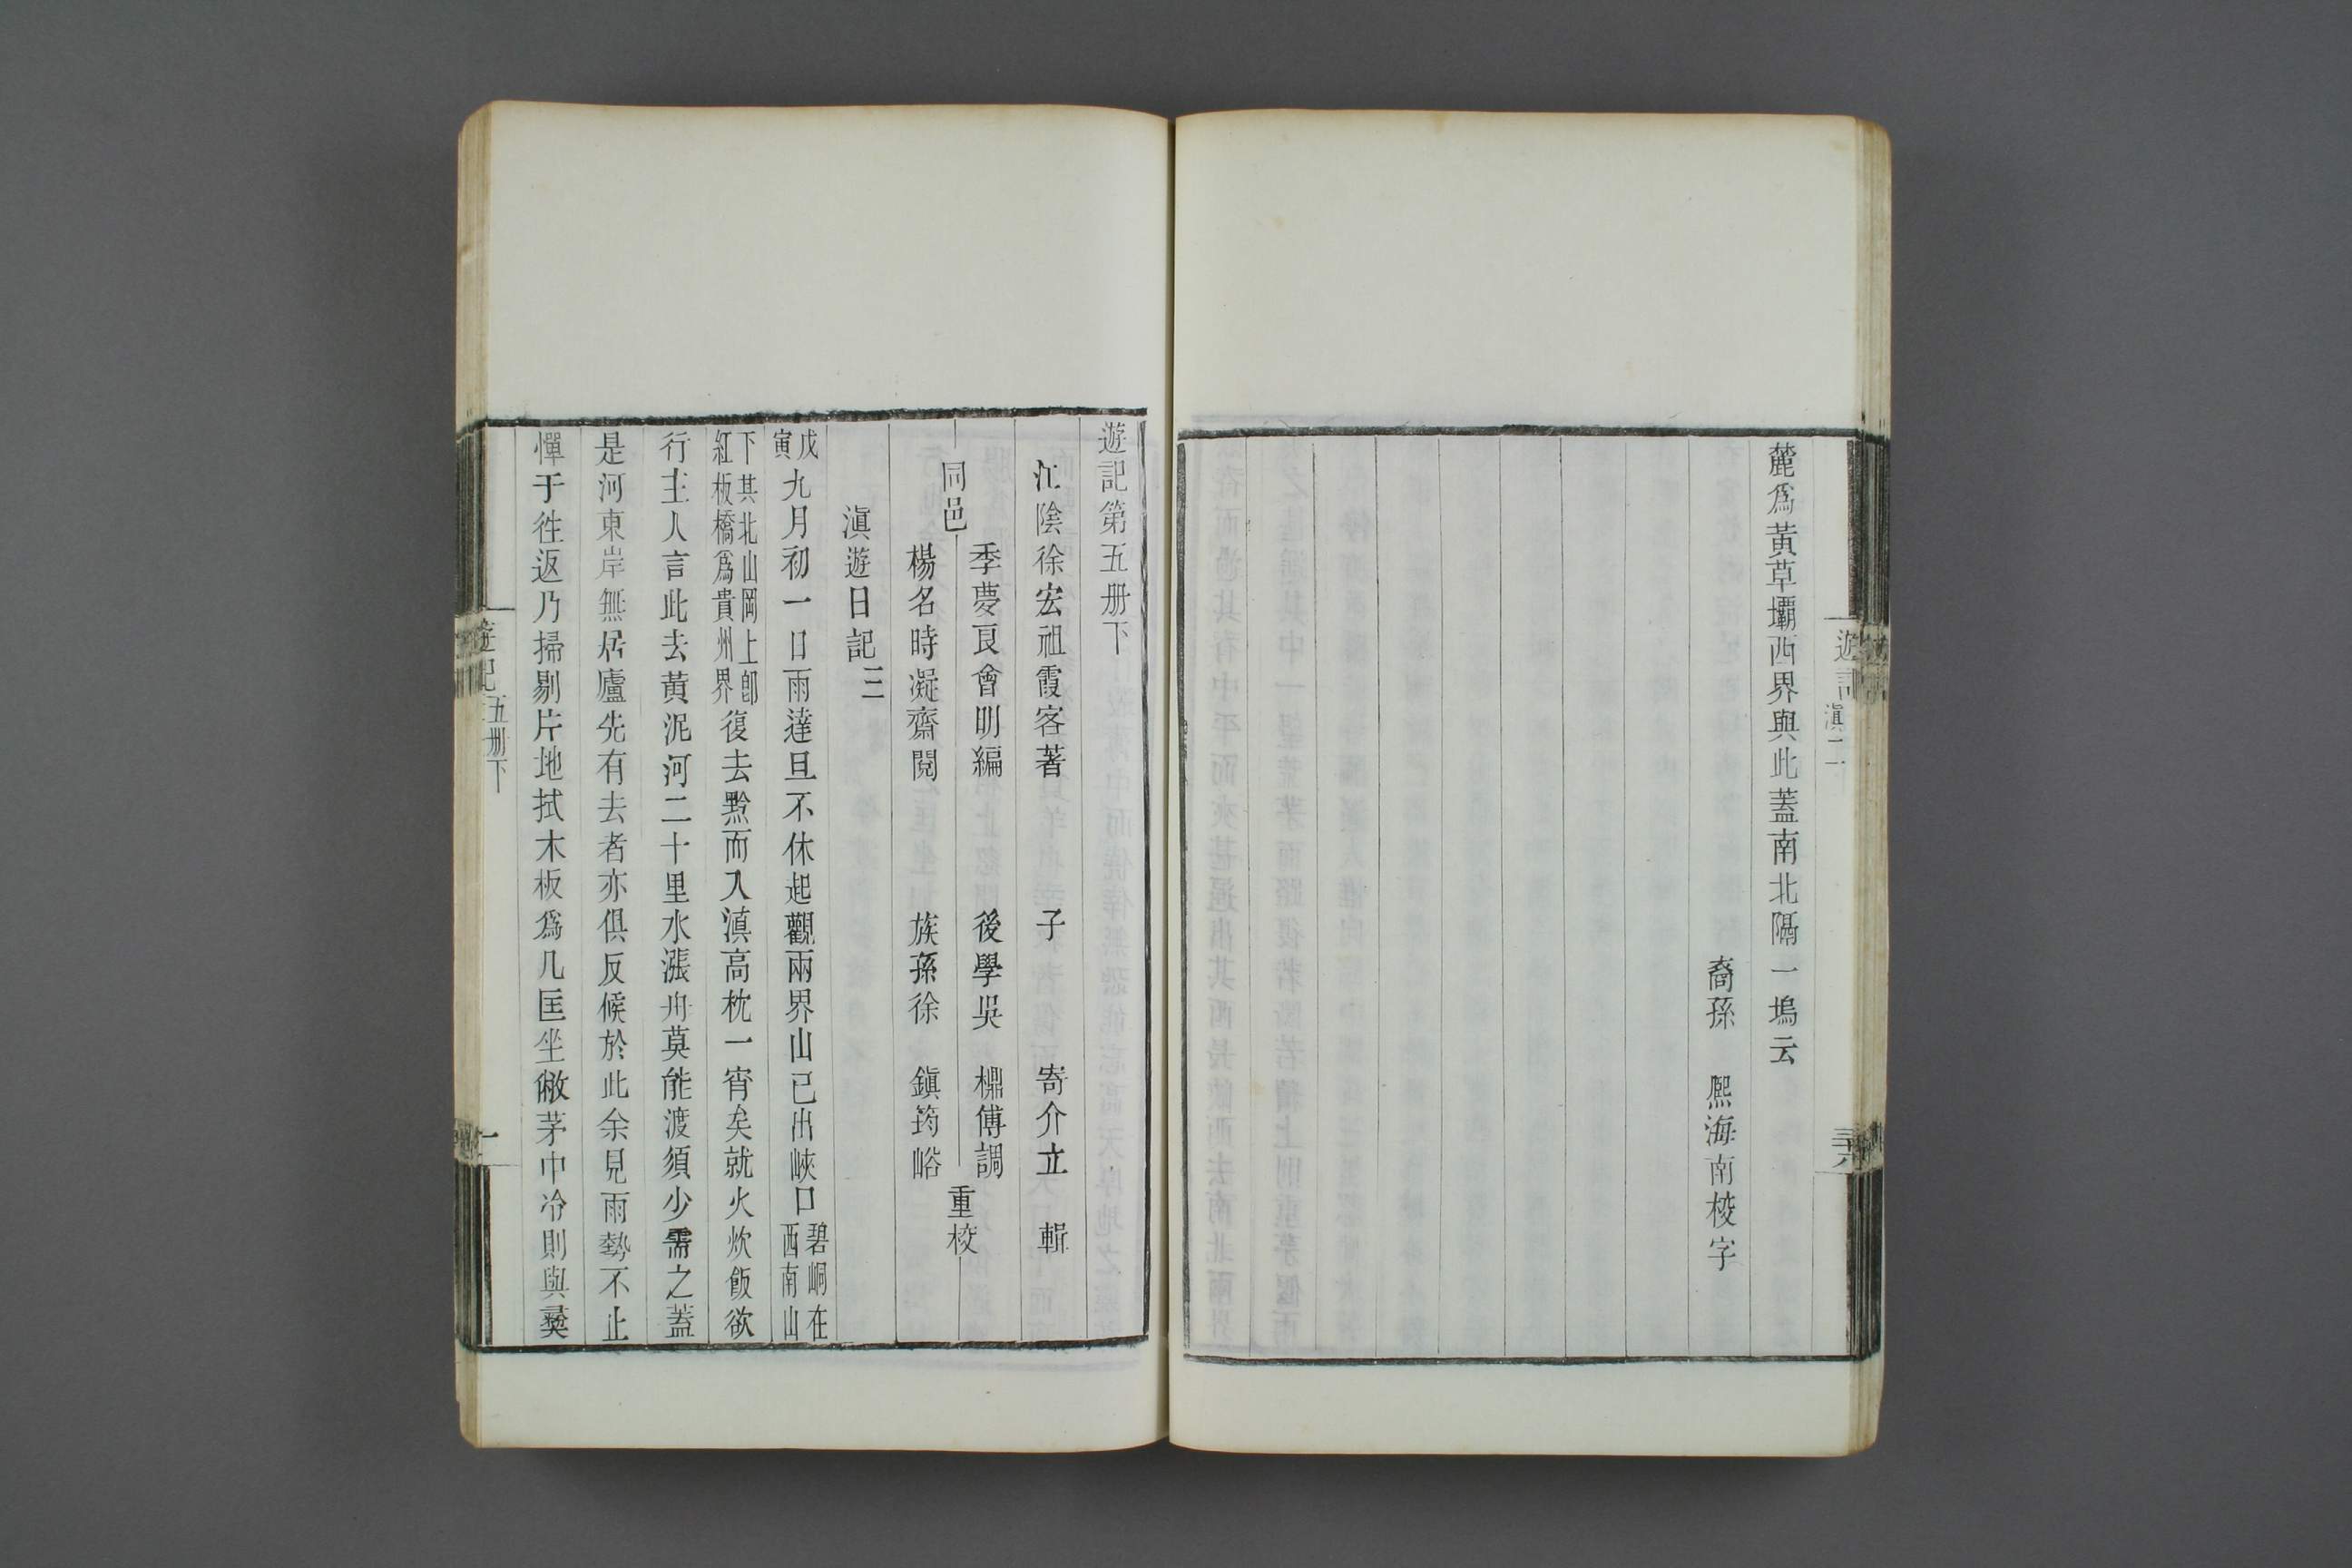 麓爲黃草壩西界與此蓋南北隔一塢云
裔孫　熙海南校字
遊記
滇二
三十六
遊記第五册下
江陰徐宏祖霞客著　　子　　寄介立　輯
同邑
季夢良會明編　　後學吳　樹傅調
楊名時凝齋閱　　族孫徐　鎮筠峪
重校
滇遊日記三
戊
寅
九月初一日雨達旦不休起觀兩界山已出峽口
碧峒在
西南山
下其北山岡上卽
紅板橋爲貴州界
復去黔而入滇高枕一宵矣就火炊飯欲
行主人言此去黃泥河二十里水漲舟莫能渡須少需之蓋
是河東岸無居廬先有去者亦俱反候於此余見雨勢不止
憚于往返乃掃剔片地拭木板爲几匡坐敝茅中冷則與彝
遊記
五册下
一